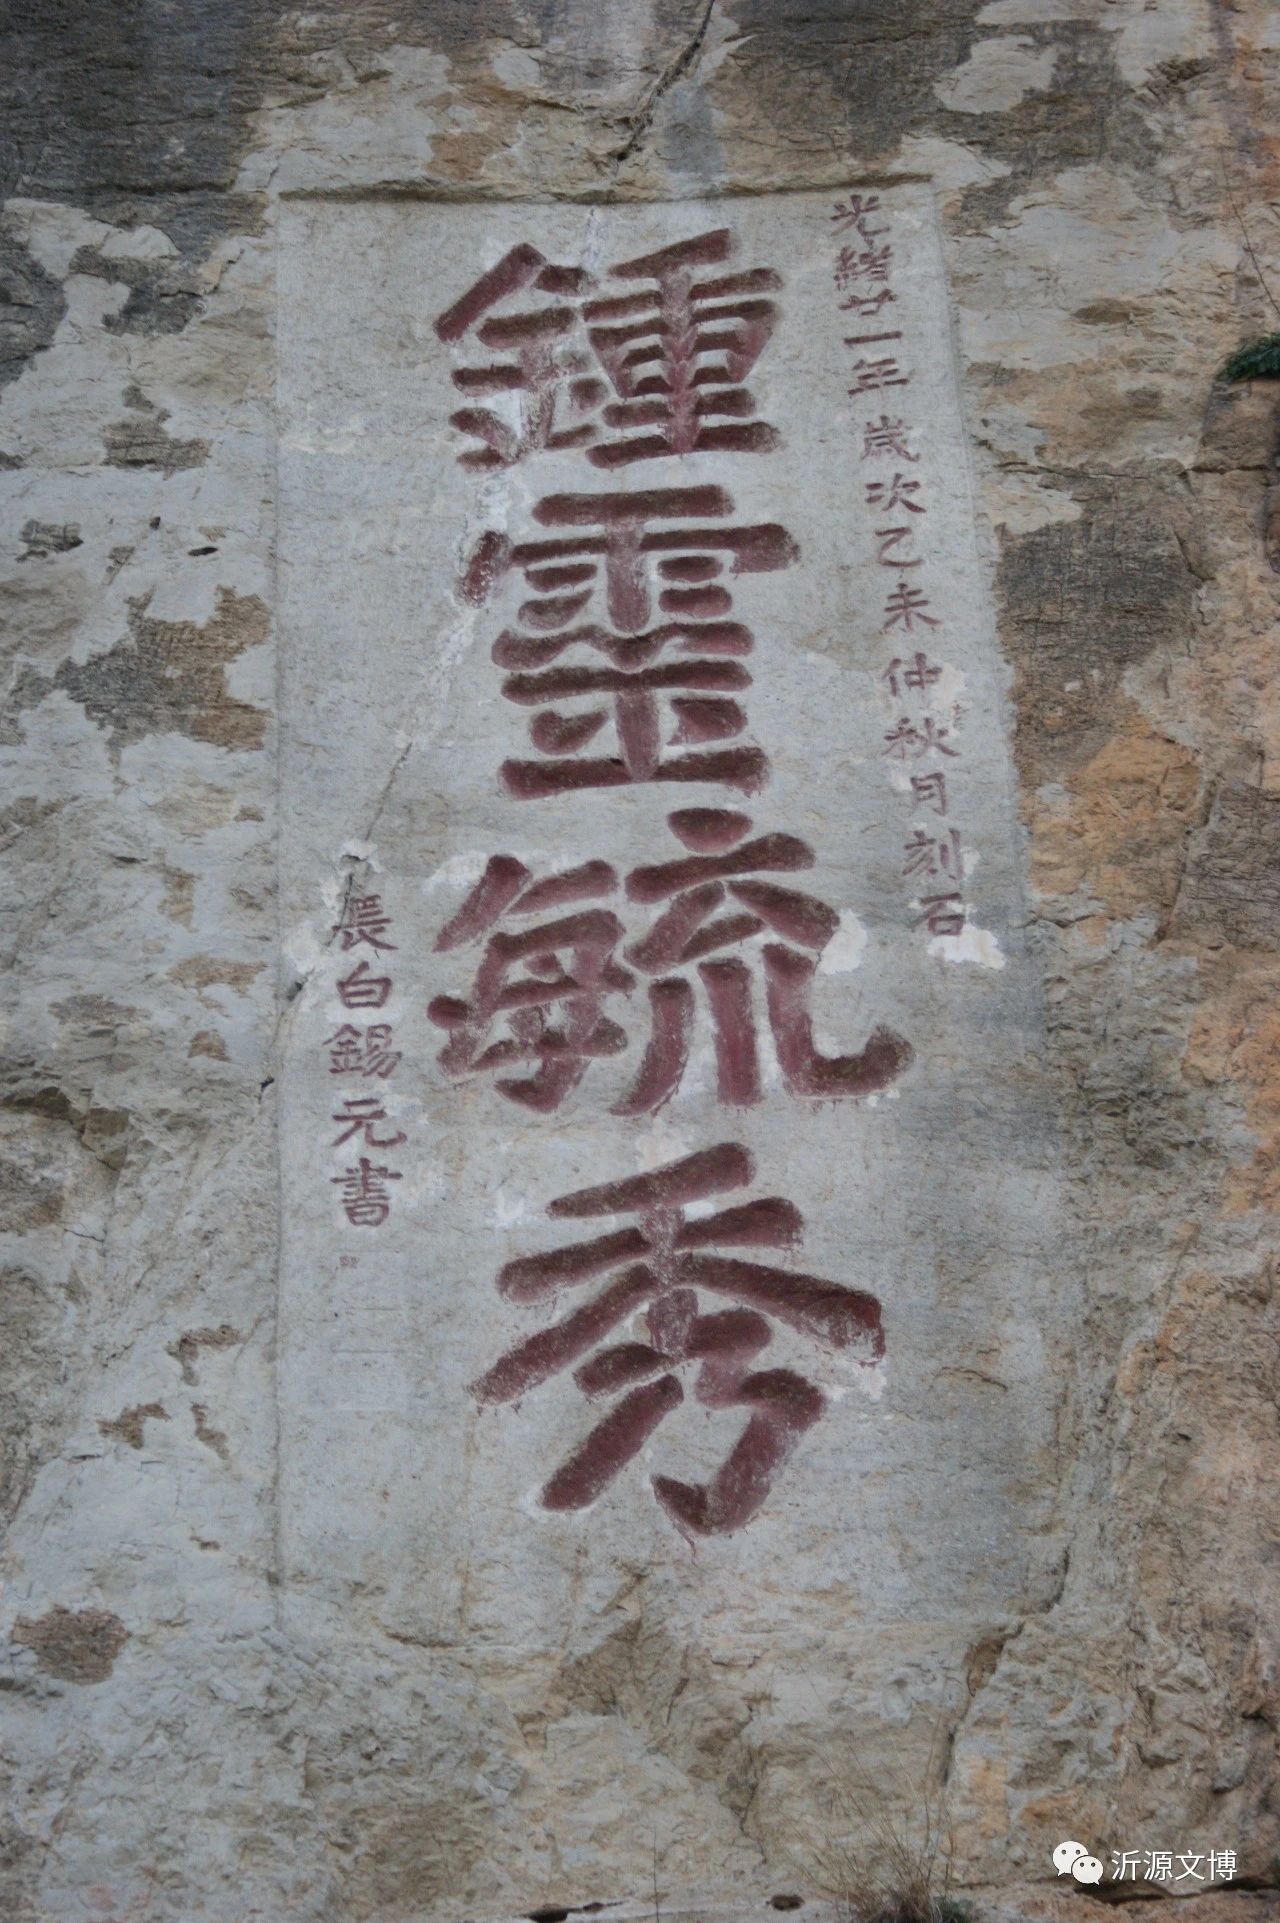 光緒廿一年歲次乙未仲秋月刻石
鍾靈毓秀
長白錫元書
沂源文博